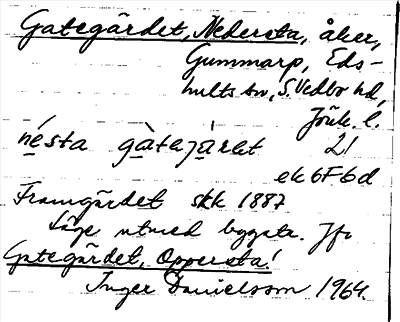 Gategärdet, Nedersta, åker,
Gummarp, Eds-
hults sn, S. Vedbo hd,
Jönk. l.
nésta gàtejàret 21
ek 6F6d
Framgärdet skk 1887
Läge utmed byggata. Jfr
Gategärdet, Oppersta!
Inger Danielsson 1964.